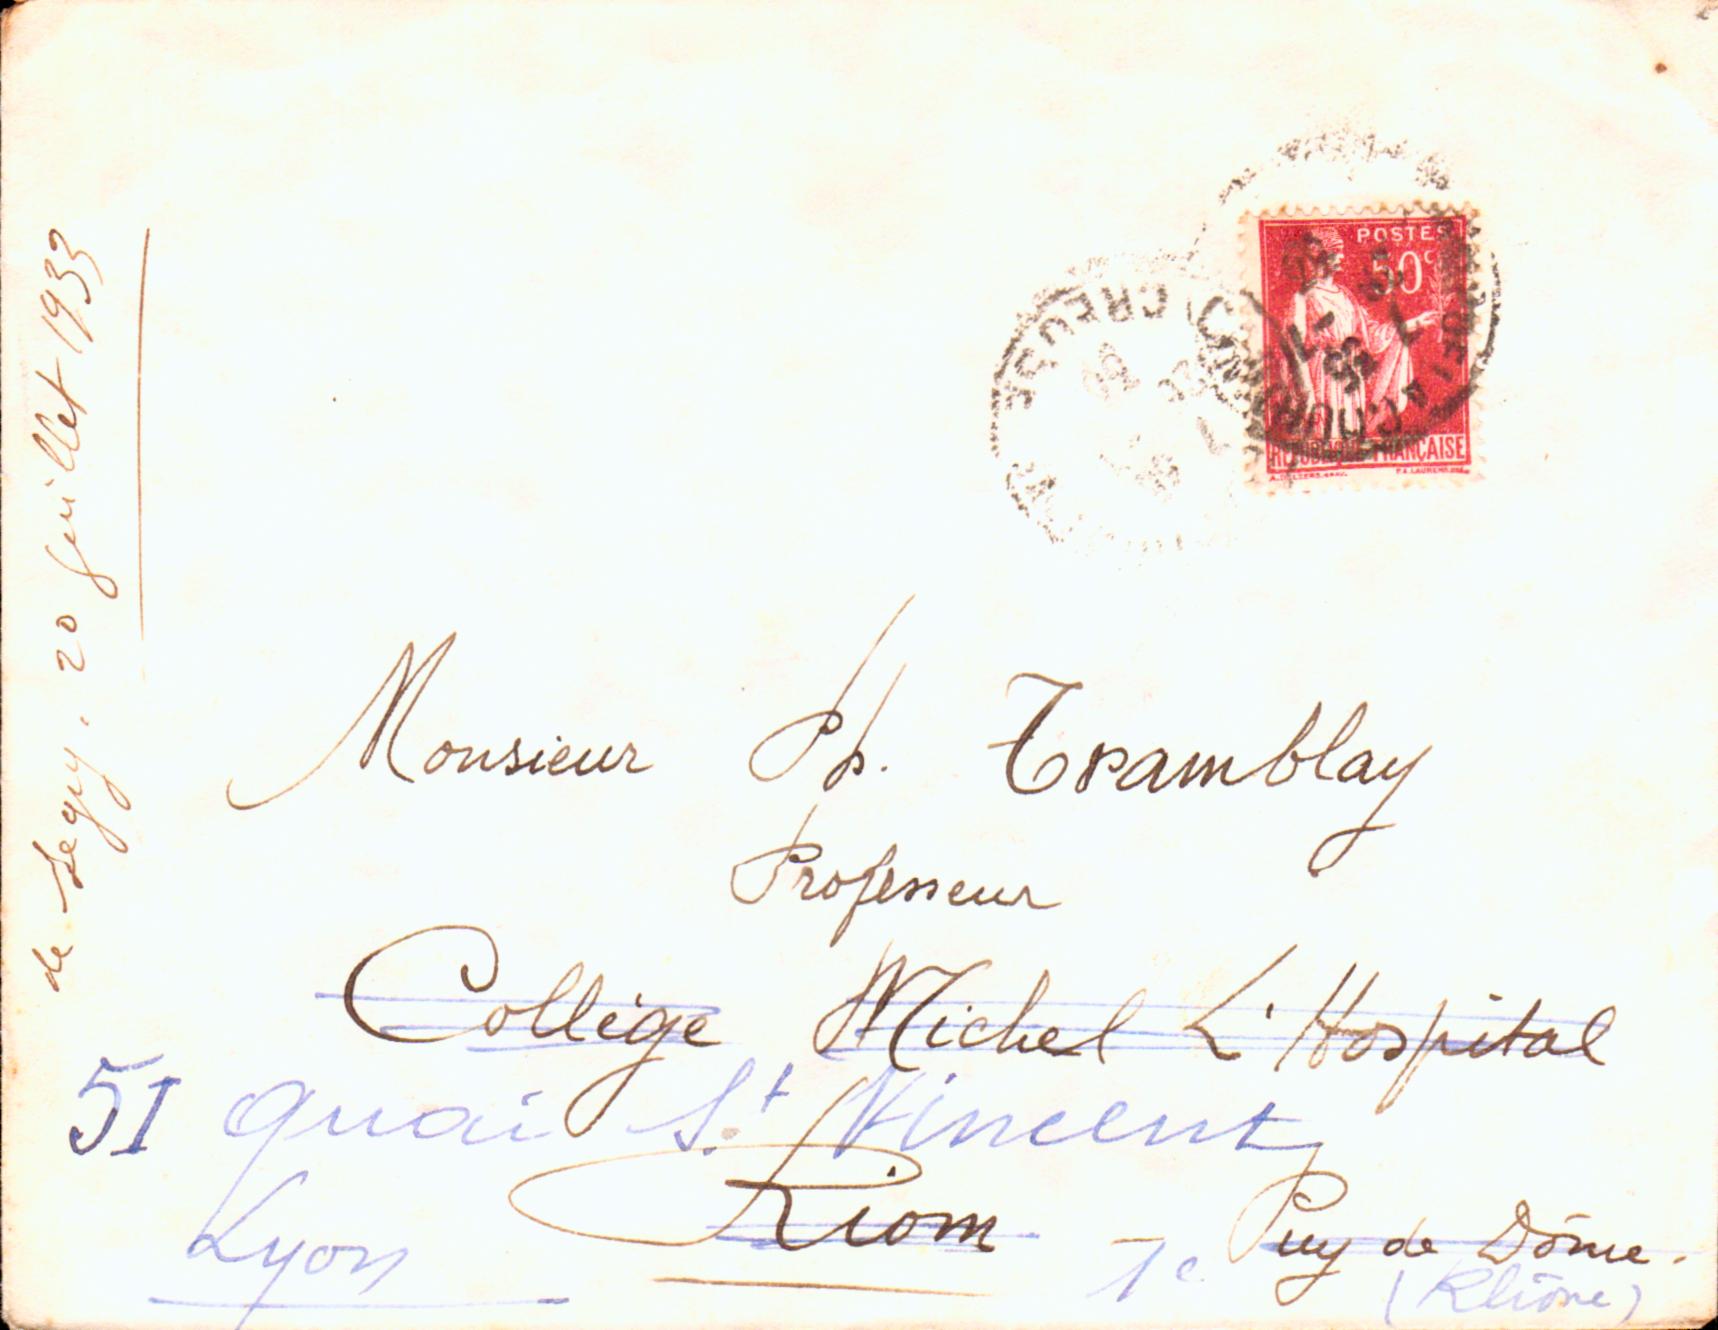 de Segry, 20 Juillet 1933
POSTES
50c
RÉPUBLIQUE FRANÇAISE
CREUSE
Monsieur Ph. Tramblay
Professeur
Collège Michel L'Hospital
51 quai St Vincent
Riom
Puy de Dôme.
Lyon
(Rhône)